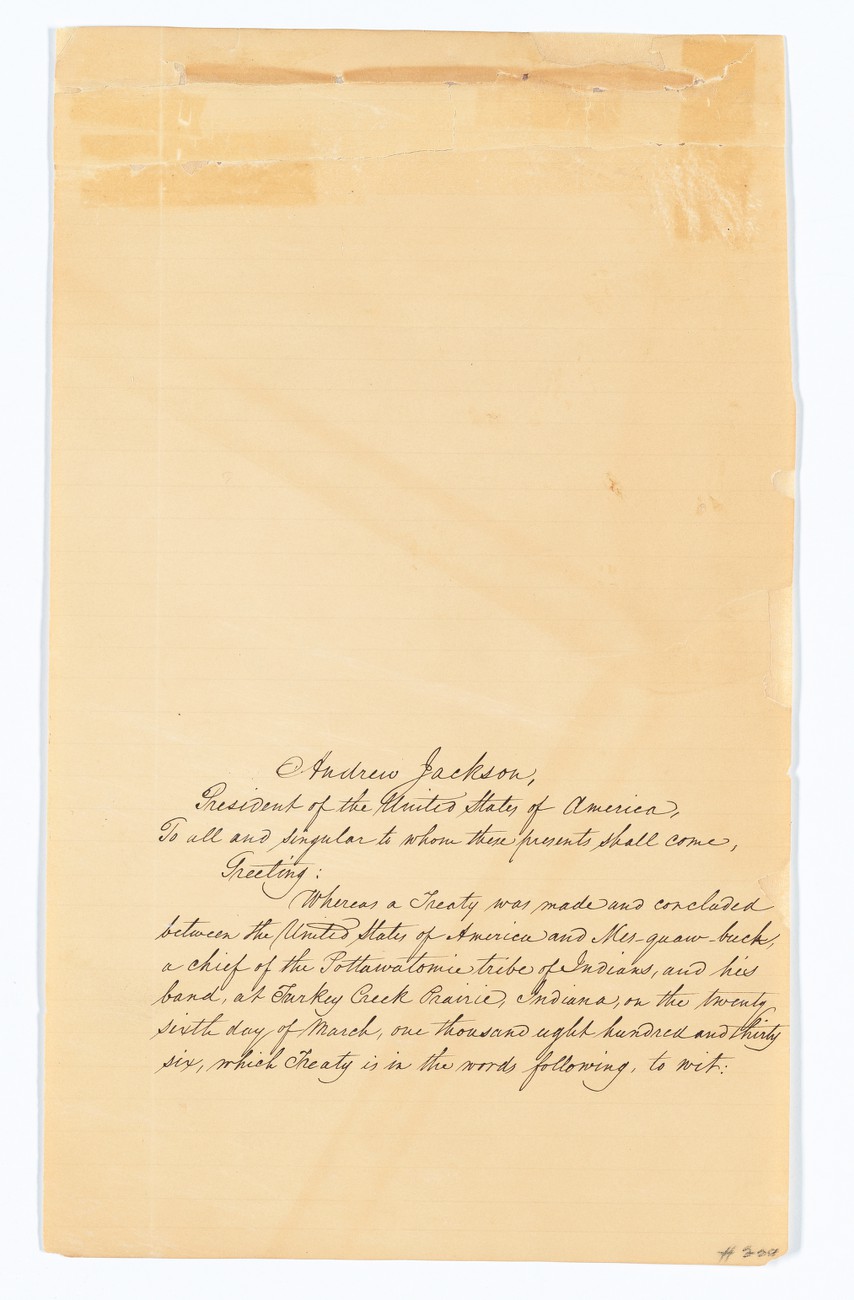 Andrew Jackson,
President of the United States of America,
To all and singular to whom these presents shall come,
Greeting:
Whereas a Treaty was made and concluded
between the United States of America and Mes-quaw-buck,
a chief of the Pottawatomie tribe of Indians, and his
band, at Turkey Creek Prairie, Indiana, on the twenty
sixth day of March, one thousand eight hundred and thirty
six, which Treaty is in the words following, to wit: